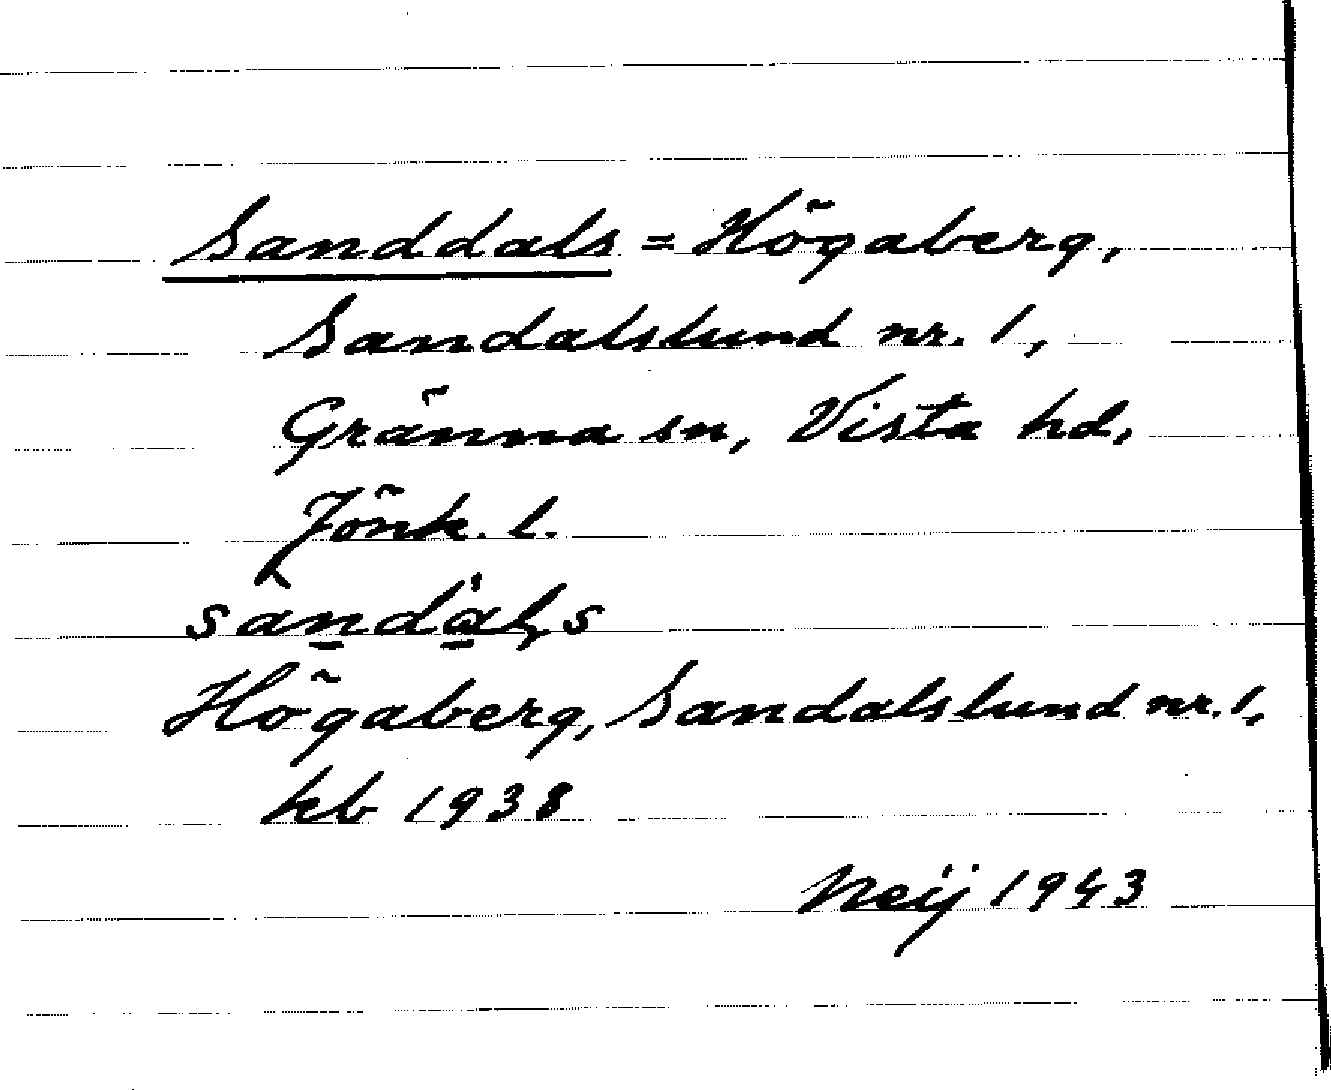 Sanddals = Högaberg,
Sandalslund nr. 1,
Gränna sn, Vista hd,
Jönk. l.
sandals
Högaberg, Sandalslund nr. 1,
kb 1938
Neij 1943